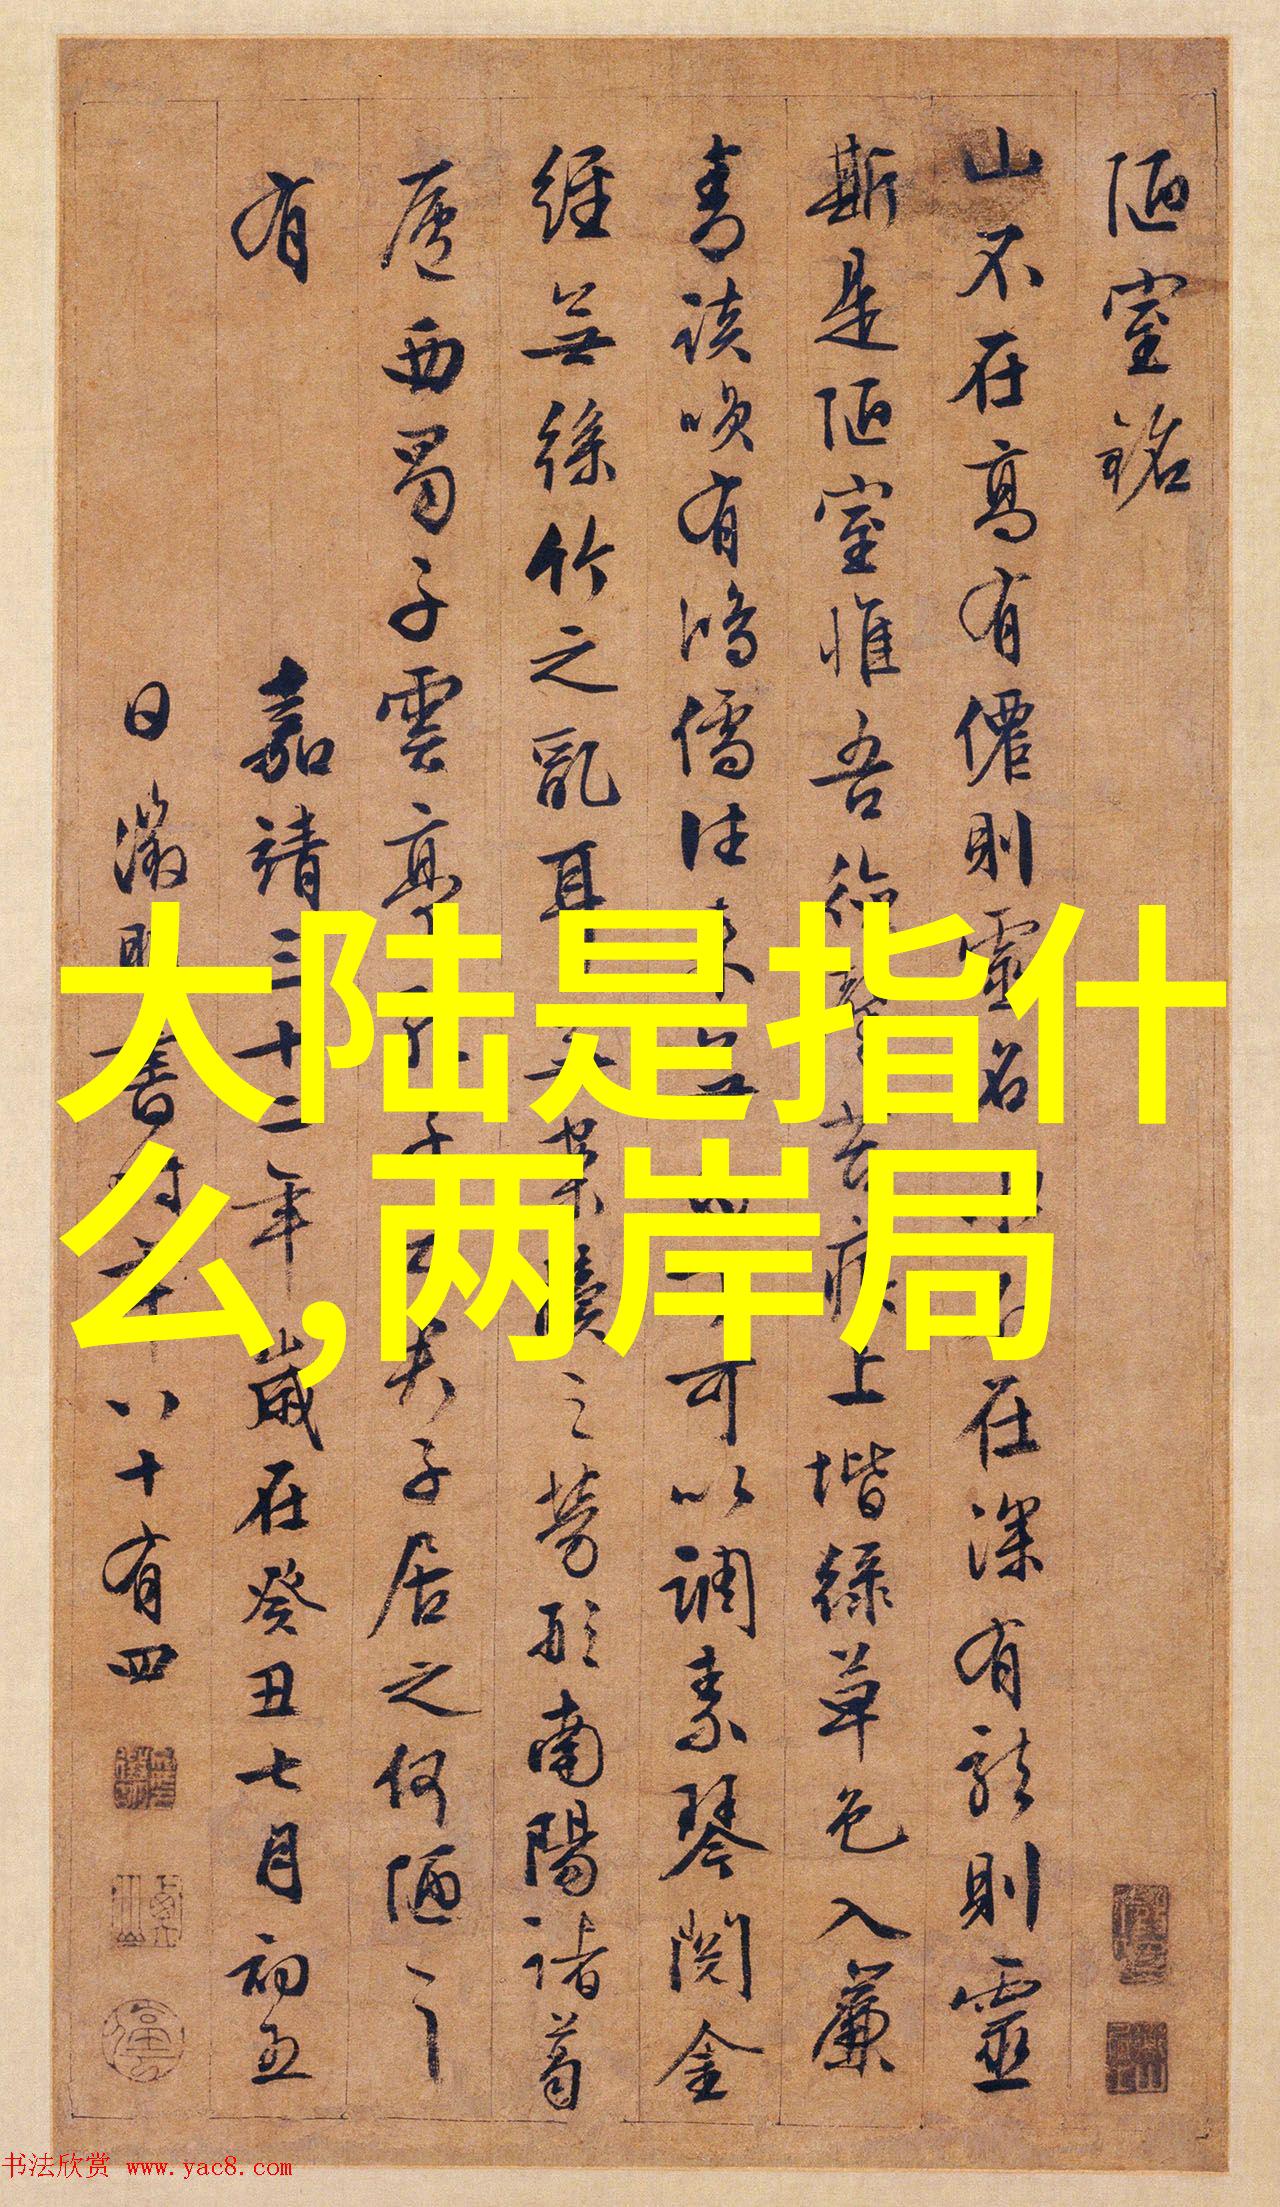 陋室銘
山不在高有僊則靈名水不在深有龍則靈
斯是陋室惟吾德馨苔痕上堦綠草色入簾
青談咲有鴻儒往來無白丁可以調素琴閱金
經無絲竹之亂耳無案牘之勞形南陽諸葛
廬西蜀子雲亭孔子云夫子居之何陋之
有
嘉靖三十二年歲在癸丑七月初五
日徵明書時年八十有四
大陆是指什
么,两岸局
书法欣赏 www.yac8.com